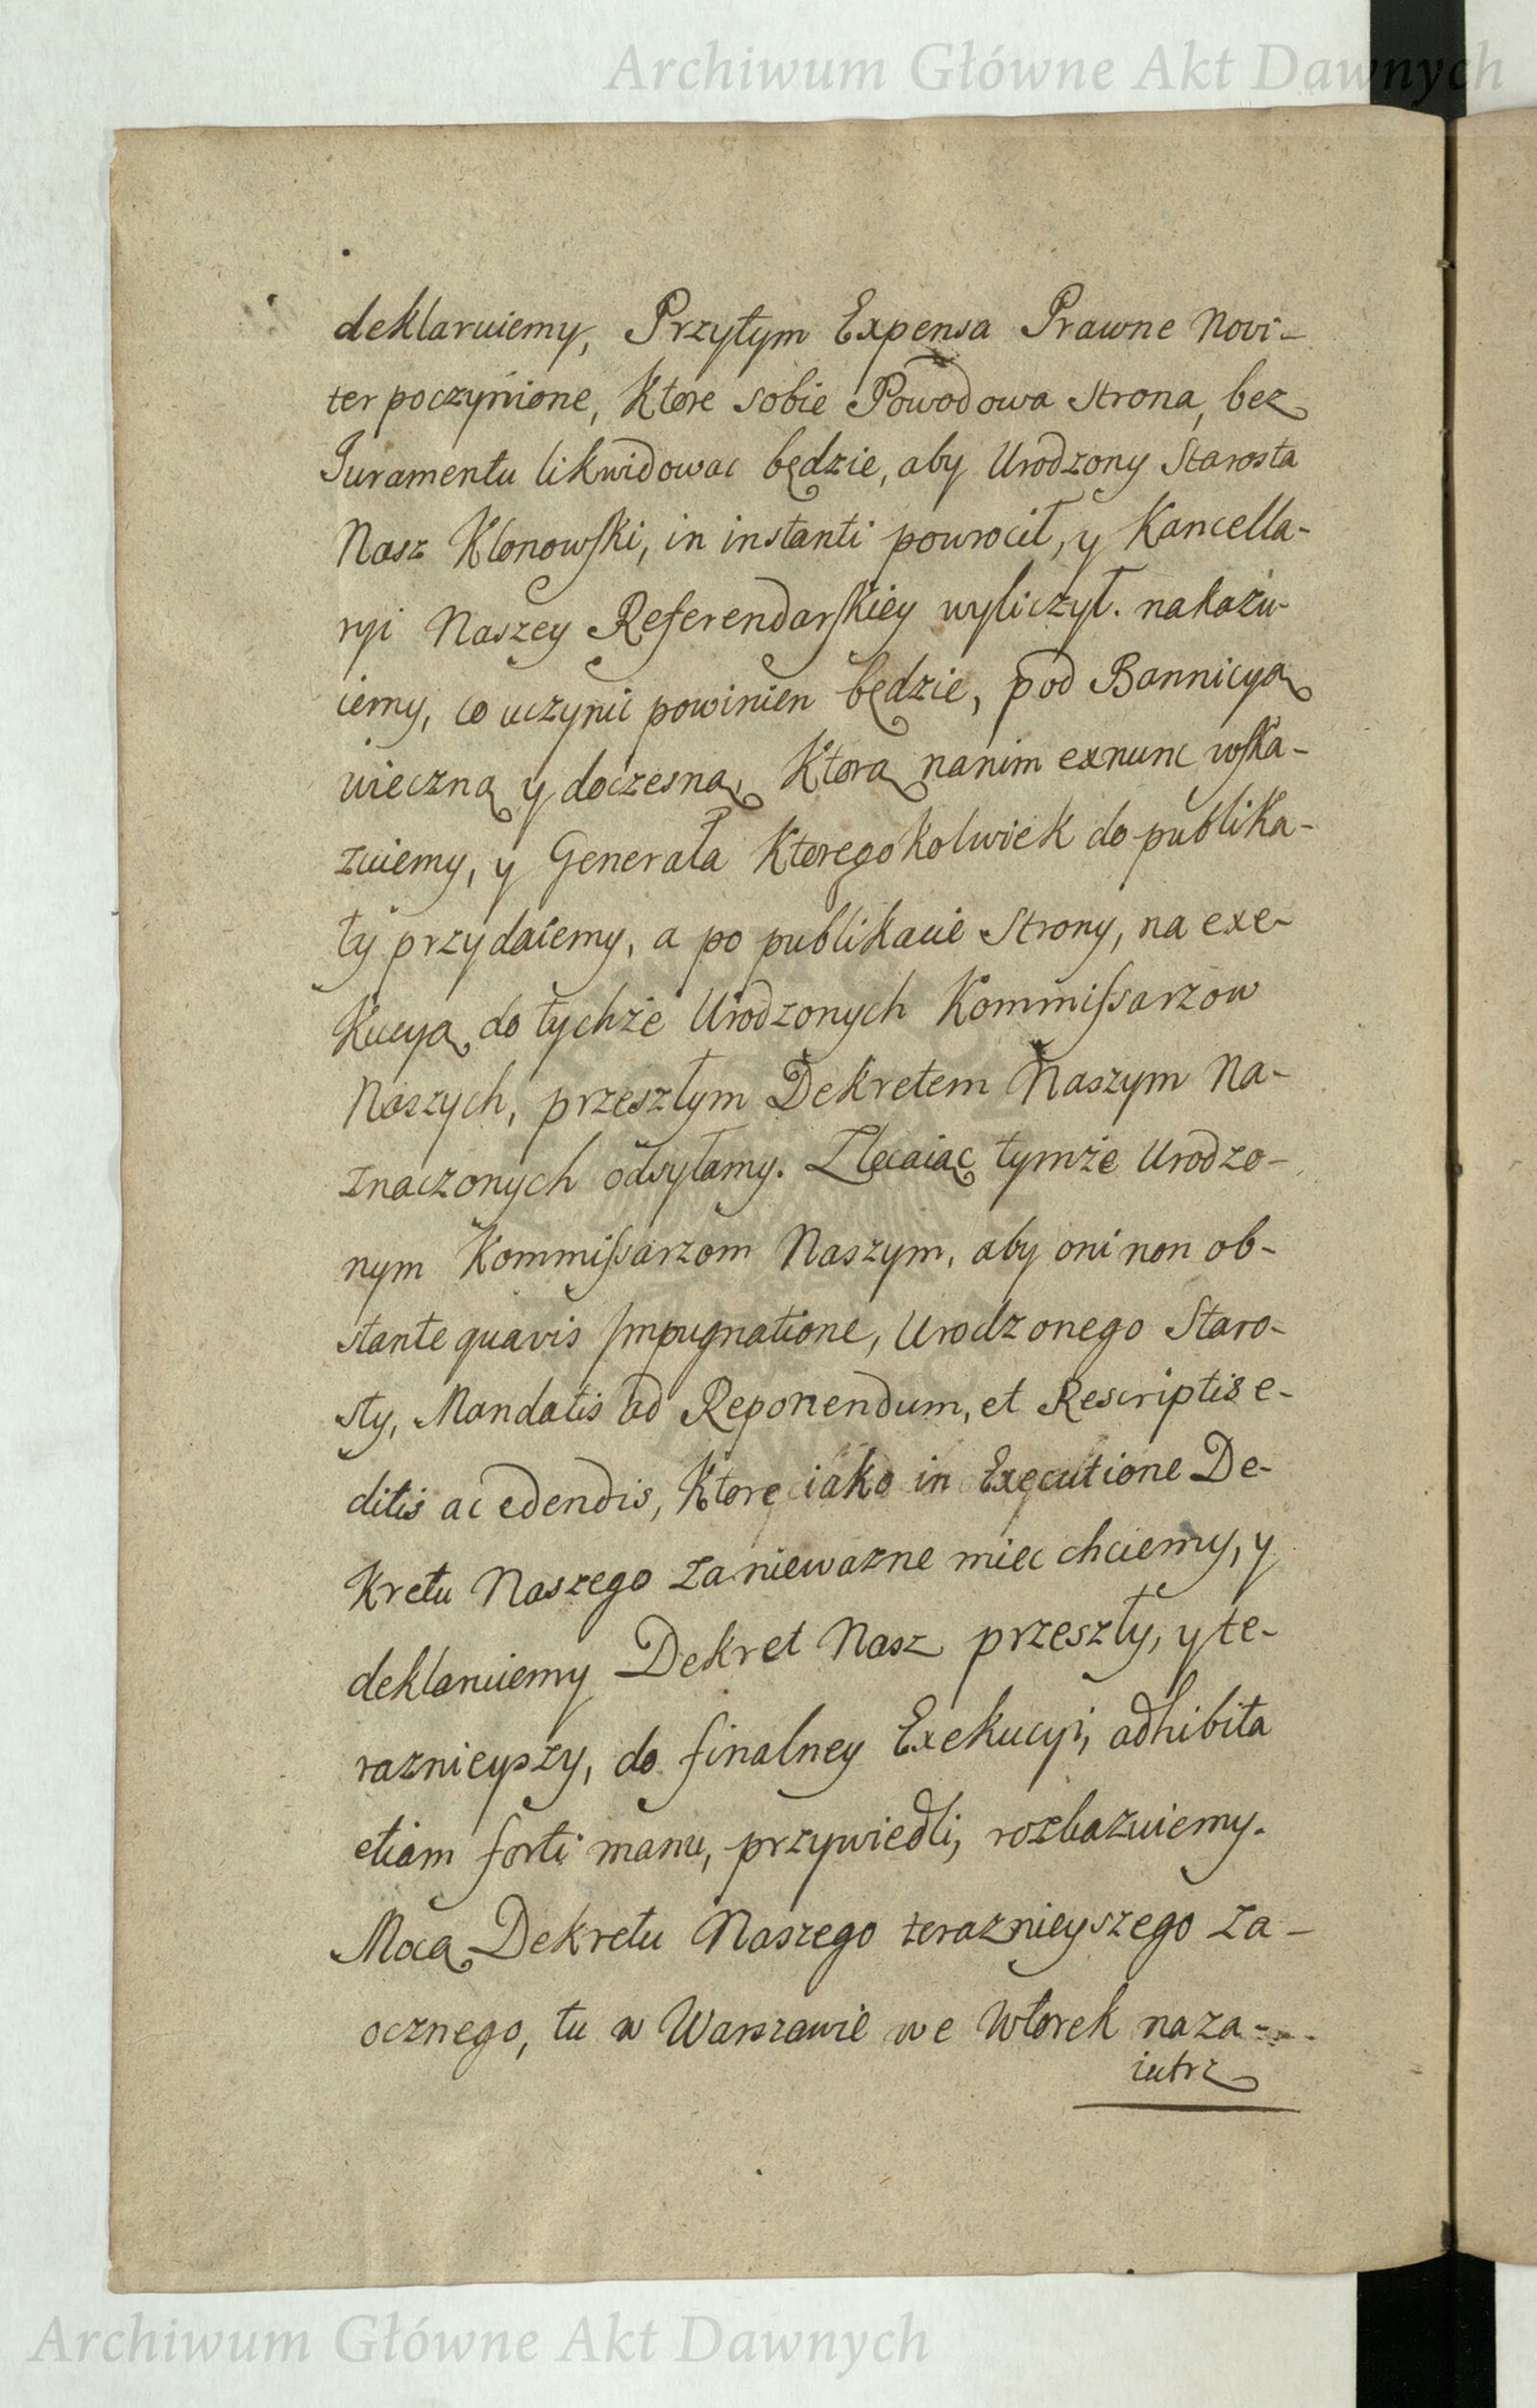 Archiwum Główne Akt Dawnych
deklaruiemy, Przytym Expensa Prawne Novi-
ter poczynione, Ktore sobie Powodowa Strona, bez
Juramentu likwidowac będzie, aby Urodzony Starosta
Nasz Klonowski, in instanti powrocił, y Kancella-
ryi Naszey Referendarskiey wyliczył. nakazu-
iemy, co uczynic powinien będzie, pod Bannicyą
wieczną y doczesną, Ktorą nanim exnunc wska-
zuiemy, y Generała Ktoregokolwiek do publika-
ty przydaiemy, a po publikacie Strony, na exe-
Kucyą do tychże Urodzonych Kommissarzow
Naszych, przeszłym Dekretem Naszym Na-
znaczonych odsyłamy. Zlecaiąc tymże Urodzo-
nym Kommissarzom Naszym, aby oni non ob-
stante quavis Impugnatione, Urodzonego Staro-
sty, Mandatis ad Reponendum, et Rescriptis e-
ditis ac edendis, Ktore iako in Executione De-
Kretu Naszego za niewazne miec chciemy, y
deklaruiemy Dekret Nasz przeszły, y te-
raznieyszy, do finalney Exekucyi, adhibita
etiam forti manu, przywiedli, rozkazuiemy.
Mocą Dekretu Naszego teraznieyszego Za-
ocznego, tu w Warszawie we Wtorek naza-
iutrz
Archiwum Główne Akt Dawnych